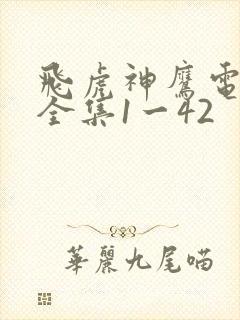 飛虎神鷹電
全集1一42
華麗九尾喵